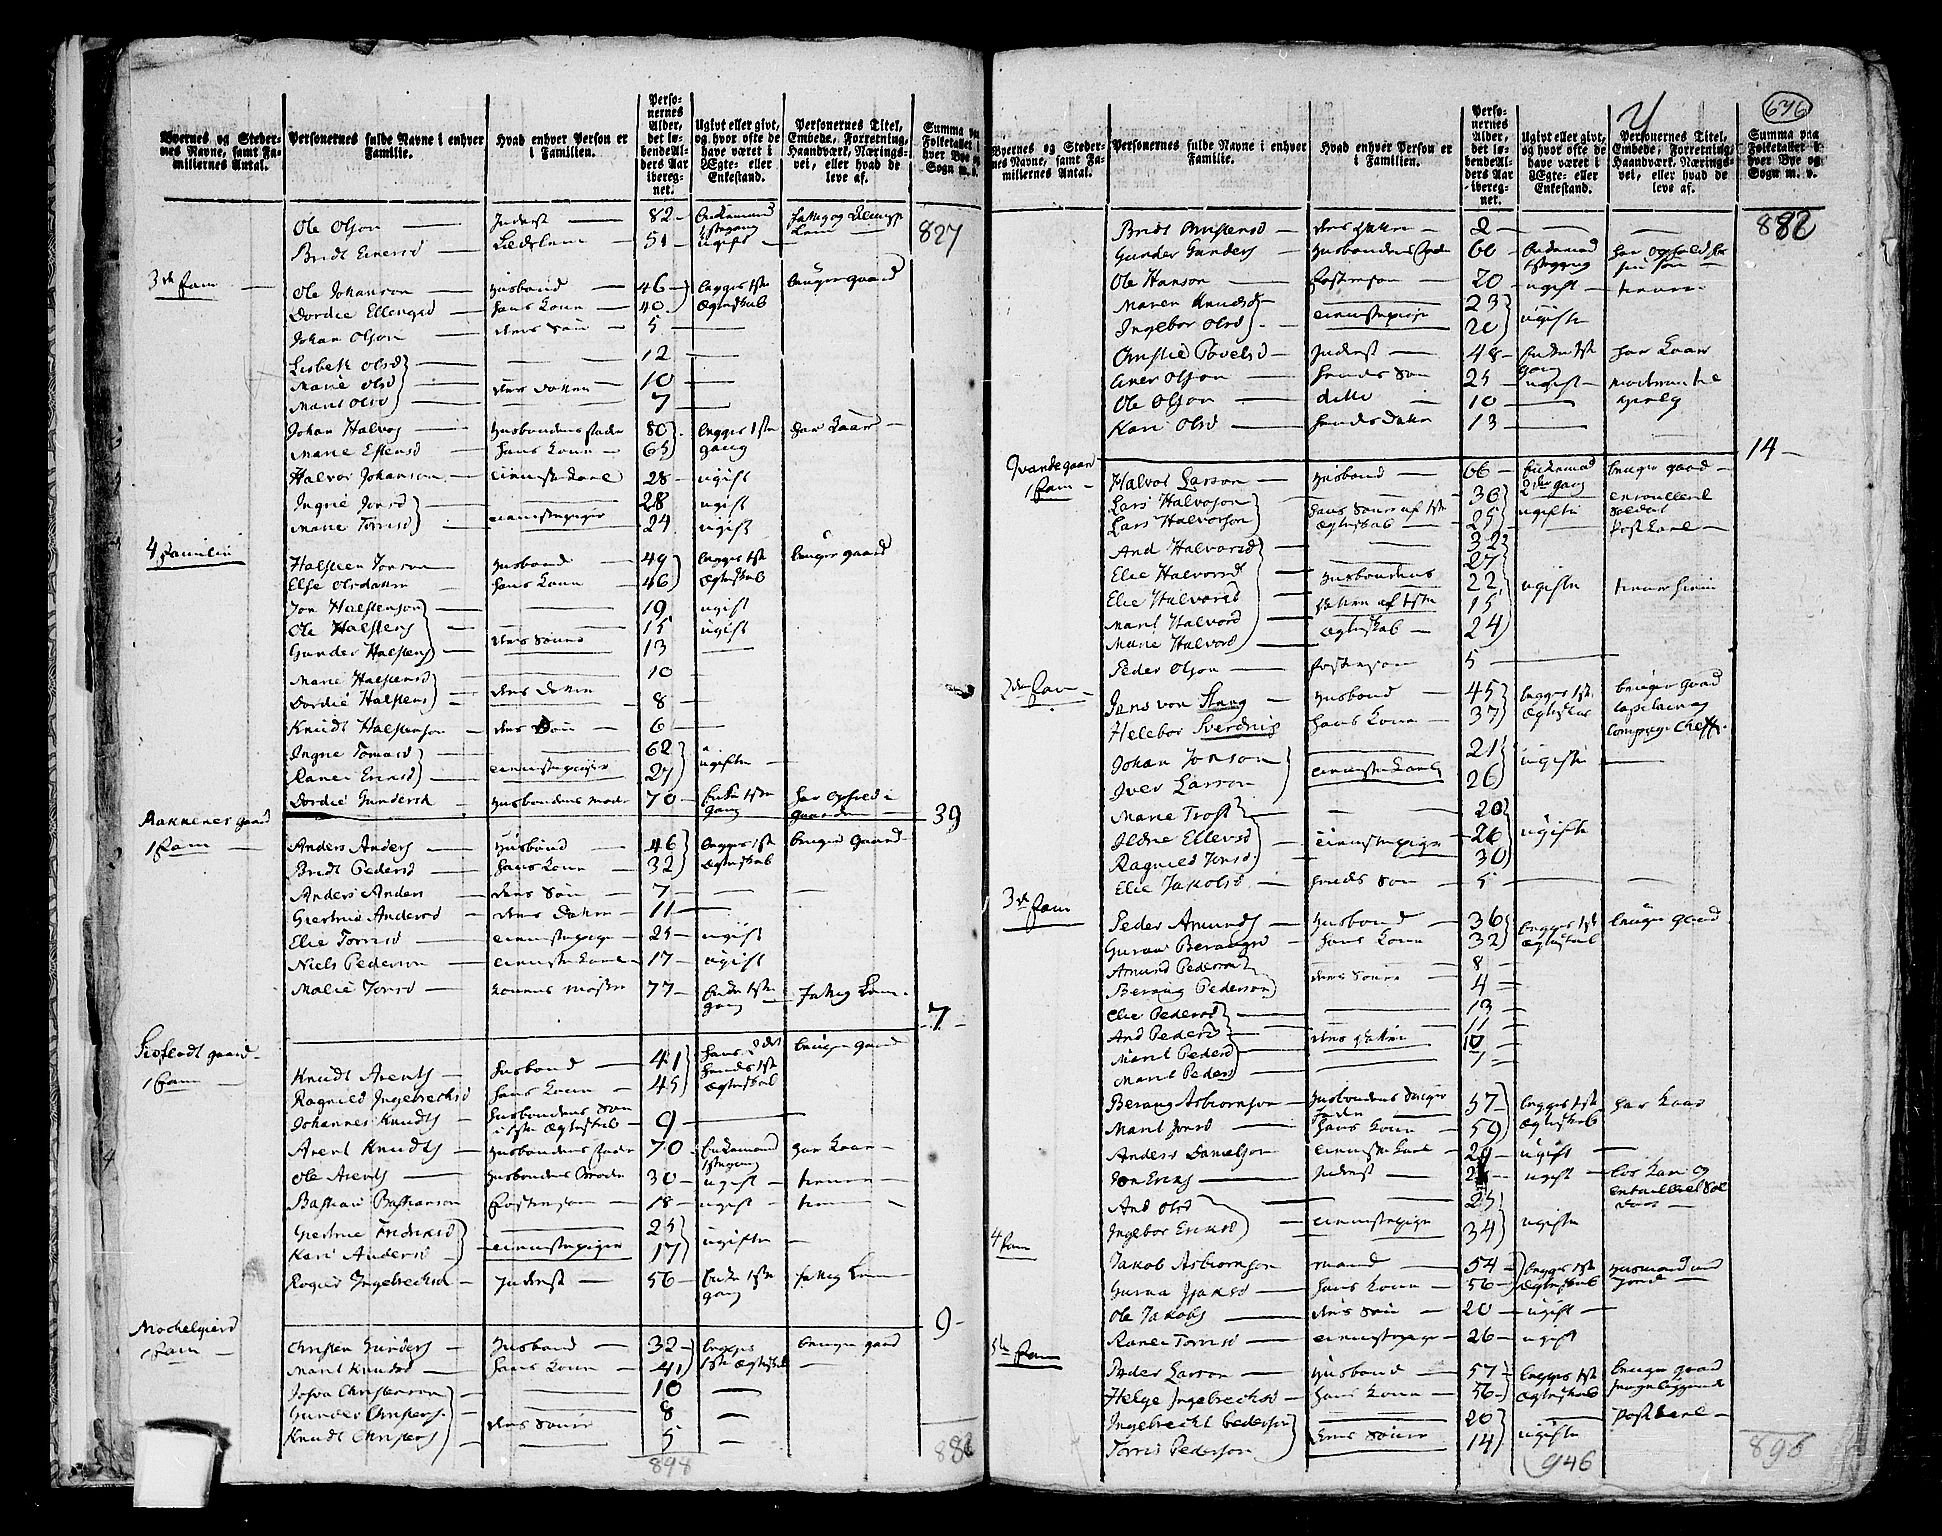 Byernes og Stedernes Navne, samt Familiernes Antal.
Personernes fulde Navne i enhver Familie.
Hvad enhver Person er i Familien.
Personernes Alder, det løbende Alders Aar iberegnet.
Ugivt eller givt, og hvor ofte de have været i Ægte- eller Enkestand.
Personernes Titel, Embede, Forretning, Haandværk, Næringsvei, eller hvad de leve af.
Summa paa Folketallet i hver Bye og Sogn m. v.
827
Ole Olson Inderst 82 Enkemand 1ste gang
Bridt Einersd 51 ugift
3de Fam
Ole Johanson Husbond 46 begges 1ste brüger gaard
Dordie Ellengsd hans Kone 40 Ægteskab
Johan Olson deres Søn 5
Lisbeth Olsd 12
Marie Olsd deres Døttre 10
Marit Olsd 7
Johan Halvors Husbondens Fader 80 begges 1ste har Kaar
Marie Estensd hans Kone 65 gang
Halvor Johanson tienestekarl 28 ugift
Ingrie Jonsd 28 ugift
Marie Torrisd tienestepiger 24 ugift
4 Familie
Halsten Jonson Husbond 49 begges 1ste brüger gaard
Else Olsdatter hans Kone 46 Ægteskab
Jon Halstenson 19 ugift
Ole Halstens 15 ugift
Gunder Halstens deres Sønner 13
Marie Halstensd 10
Dordie Halstens deres Døttre 8
Knüdt Halstenson deres Søn 6
Ingrie Tomasd 62
Ranei Ericsd tienestepiger 27 ugifte
Dordie Gundersd Husbondens Moder 70 Enke 1ste gang har ophold i gaarden
39
Bakkener gaard
1 Fam
Anders Anders Husbond 46 begges 1ste bruger gaard
Bridt Pedersd hans Kone 32 Ægteskab
Anders Anders deres Søn 7
Giertrud Andersd deres Datter 11
Elie Torrisd tienestepige 25 ugift
Niels Pederson tienestekarl 17 ugift
Malie Jonsd Konens Moster 77 Enke 1ste gang Fattig Lem
7
gaard
1 Fam
Knüdt Arents Husbond 41 hans 2det bruger gaard
Ragnild Ingebrechtsd hans Kone 45 hendes 1ste Ægteskab
Johannes Knudts Husbondens Søn i 1ste Ægteskab 9
Arent Knudts Husbondens Fader 70 Enkemand 1ste gang har Kaar
Ole Arents Husbondens Broder 30 ugift tiener
Bastian Bastianson Fosterson 18 ugift
Giertrue Fredriksd 25
Kari Andersd tienestepiger 17 ugifte
Ingebrechtsd Inderst 56 Enke 1ste gang fattig Lem
9
Mochelgierd
1 Fam
Christen Gunders Husbond 32 begges brüger gaard
Marit Knudsd hans Kone 41 1ste Ægteskab
Josva Christenson 10
Gunder Christens 8
Knudt Christens deres Sønner 5
898
882
Byernes og Stedernes Navne, samt Familiernes Antal.
Personernes fulde Navne i enhver Familie.
Hvad enhver Person er i Familien.
Personernes Alder, det løbende Alders Aar iberegnet.
Ugivt eller givt, og hvor ofte de have været i Ægte- eller Enkestand.
Personernes Titel, Embede, Forretning, Haandværk, Næringsvei, eller hvad de leve af.
Summa paa Folketallet i hver Bye og Sogn m. v.
646
882
Bridt Christensd deres Datter 2
Gunder Gunders Husbondens Fader 60 Enkemand 1ste gang har ophold hos sin Søn
Ole Hanson Fosterson 20 ugift tiener
Maren Knudsd 23
Ingebor Olsd tienestepige 20 ugifte
Christie Povelsd Inderst 48 Enke 1ste gang har Kaar
Einer Olson hendes Søn 25 ugift
Ole Olson ditto 10
Kari Olsd hendes Datter 13
14
gaard
1 Fam
Halvor Larson Husbond 66 Enkemand 2den gang bruger gaard
Lars Halvorson hans Sønner af 1ste 36 enrolleret Soldat
Lars Halvorson Ægteskab 25 ugifte Postkarl
And Halvorsd 32
Elie Halvorsd 27
Elie Halvorsd Husbondens 22 ugifte
Marit Halvorsd Døttre af 1ste 15
Marie Halvorsd Ægteskab 24
Peder Olson Fosterson 5
2den Fam
Jens von Stang Husbond 45 begges 1ste bruger gaard
Helebor Sverdrup hans Kone 37 Ægteskab Capitain og Compagni Cheff
Johan Jonson 21
Iver Larson tienestekarle 26 ugifte
Marie Trost 20
Ildrie Ellevsd tienestepiger 26 ugifte
Ragnild Jonsd 30
Elie Jakobsd hendes Søn 5
3de Fam
Peder Amunds Husbond 36 begges 1ste bruger gaard
Guran Berangsd hans Kone 32 Ægteskab
Amund Pederson 8
Berang Pederson deres Sønner 4
Elie Pedersd 13
And Pedersd 11
Marit Pedersd deres Døttre 10
Marit Pedersd 7
Berang Asbiornson Husbondens Sviger Fader 57 begges 1ste har Kaar
Marit Jonsd hans Kone 59 Ægteskab
Anders Danielson tienestekarl ugift
Jon Erichs Inderst ugift
And Olsd 25
Ingebor Ericksd tienestepige 34 ugifte
4 Fam
Jakob Asbiornson mand 54 begges 1ste Husmand med Jord
Gurna Isaksd hans Kone 56 Ægteskab
Ole Jakobs deres Søn 20 ugift
Ranei Torrisd tienestepige 26 ugift
5te Fam
Peder Larson Husbond 57 begges 1ste bruger gaard
Helge Ingebrechtsd hans Kone 56 Ægteskab
Ingebrecht Pederson 20 Postkarl
Torris Pederson deres Sønner 14 ugifte
946
896